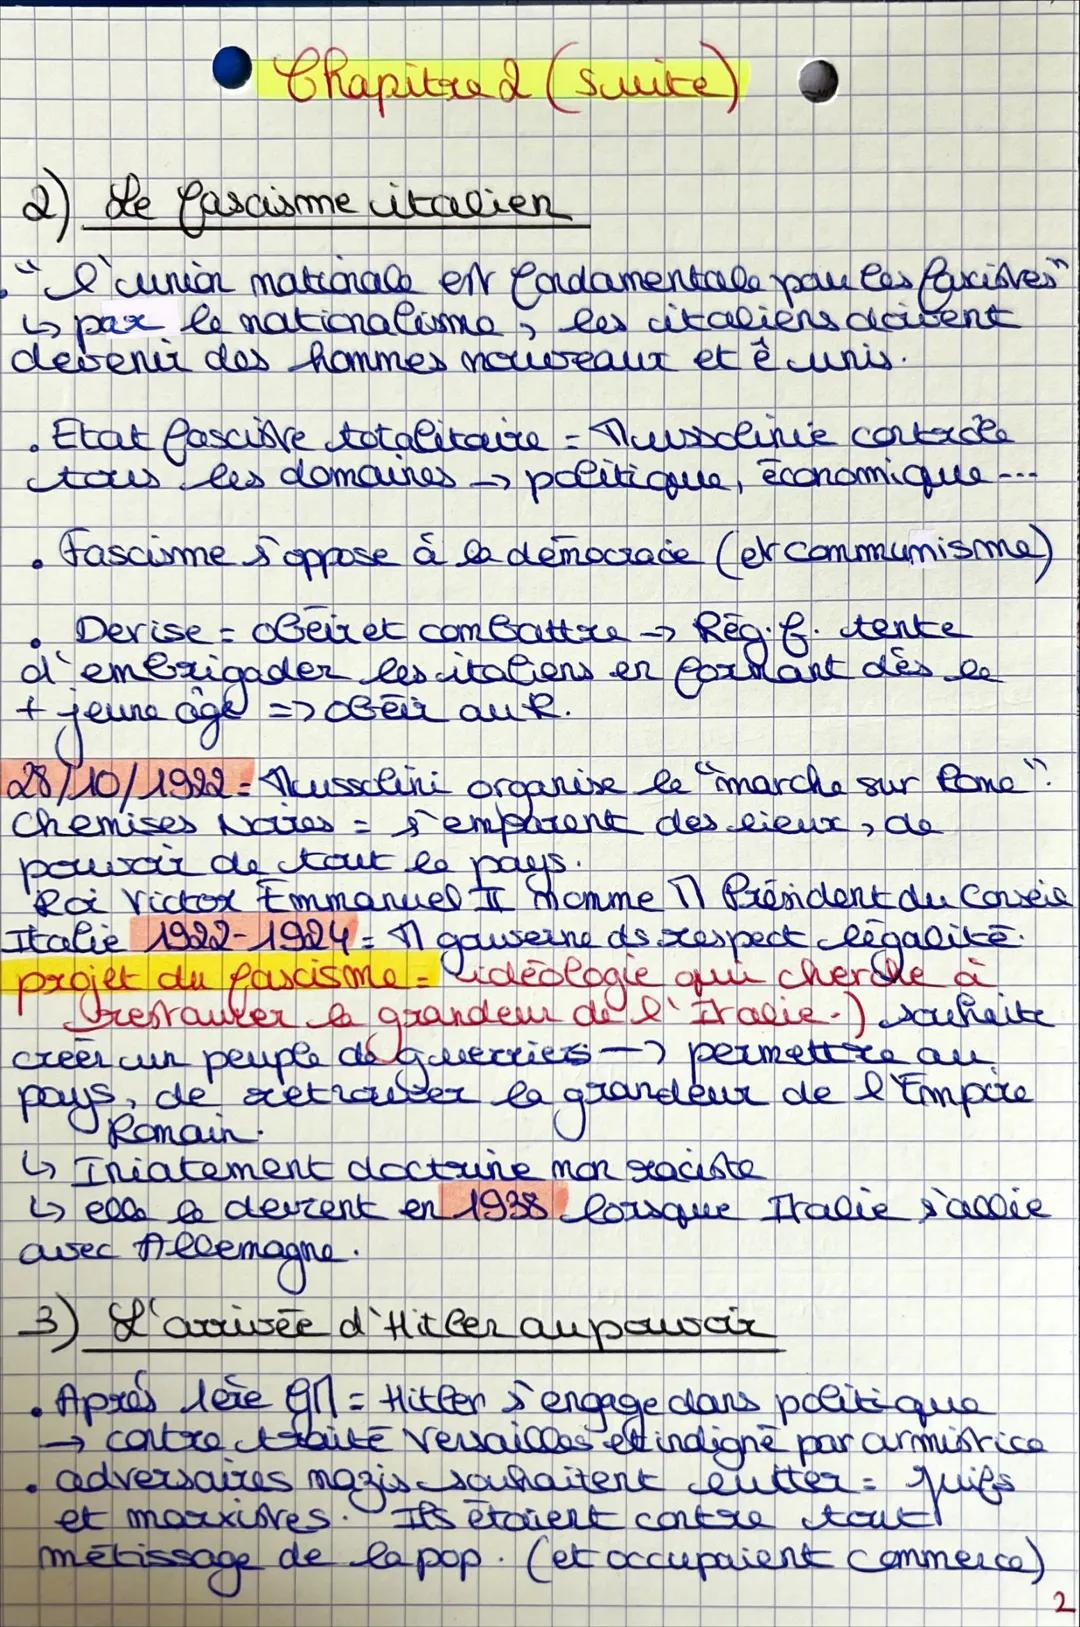 Chapitre 2 (suite)
2) Le fascisme italien
. "l'union nationale est fondamentale pour les fascistes"
↳ par le nationalisme, les italiens doivent
devenir des hommes nouveaux et ê unis.
. Etat fasciste totalitaire = Mussolinie contrôle
tous les domaines → politique, économique ...
. Fascisme s'oppose à la démocracie (et communisme)
. Devise = obéir et combattre → Rég. f. tente
d'embrigader les italiens en formant dès le
+ jeune âge => obéir au R.
28/10/1922 = Mussolini organise le "marche sur Rome".
Chemises Noires = s'emparent des lieux, de
pouvoir de tout le pays.
Roi Victor Emmanuel II nomme M Président du Conseil
Italie 1922-1924 = M gouverne ds respect légalité.
projet du fascisme = idéologie qui cherche à
restaurer la grandeur de l'Italie.) souhaite
créer un peuple de guerriers → permettre au
pays, de retrouver la grandeur de l'Empire
Romain.
↳ Iniatement doctrine non raciste
↳ elle le devient en 1938 lorsque Italie s'allie
avec Allemagne.
3) L'arrivée d'Hitler au pouvoir
. Après 1ère GM = Hitler s'engage dans politique
→ contre traité Versailles et indigné par armistice
. adversaires nazis souhaitent lutter = juifs
et marxistes. Ils étaient contre tout
métissage de la pop. (et occupaient commerce)
2